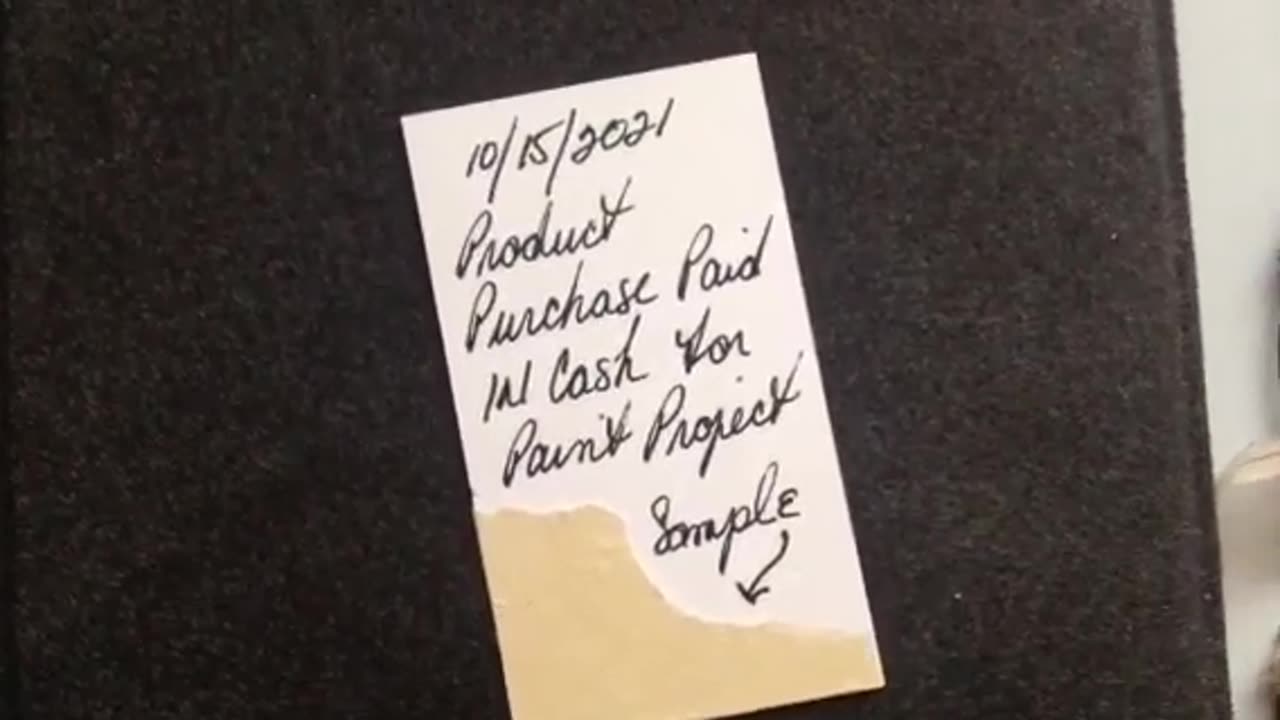 10/15/2021
Product
Purchase Paid
IN Cash for
Paint Project
Sample